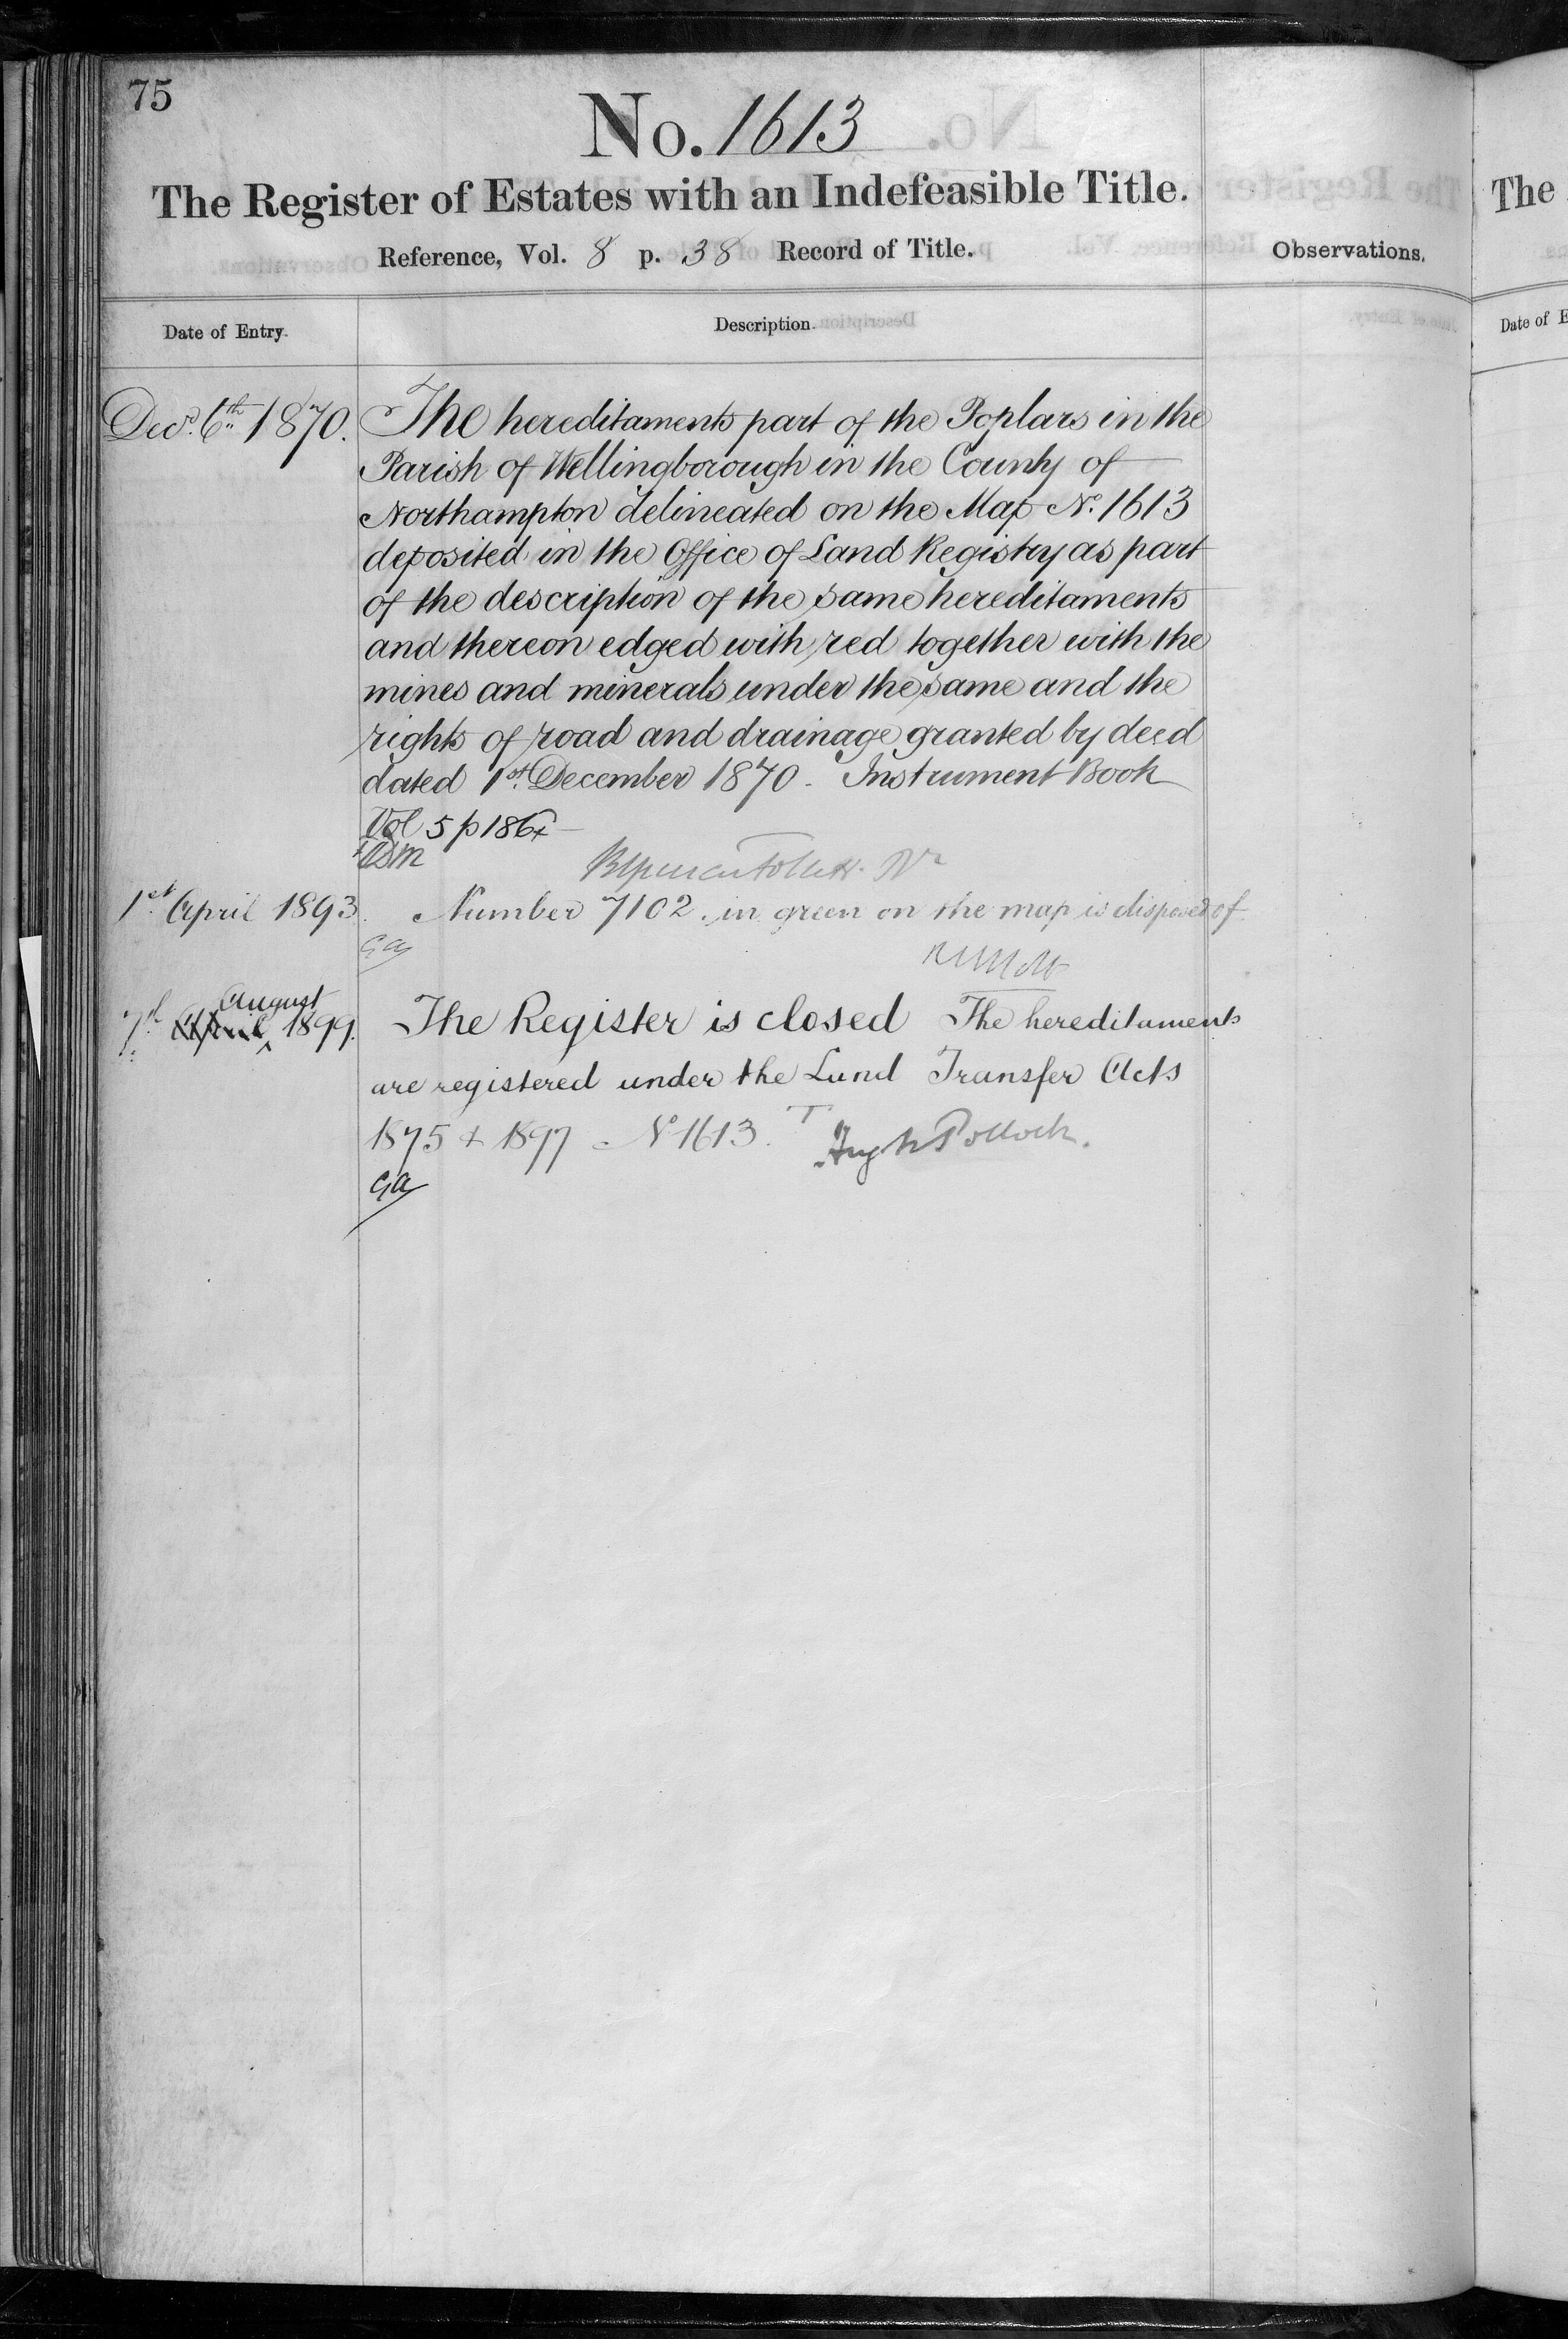 75
No. 1613
The Register of Estates with an Indefeasible Title.
Reference, Vol. 8 p. 38 Record of Title.
Observations.
Date of Entry.
Description.
Decr. 6th 1870.
The hereditaments part of the Poplars in the
Parish of Wellingborough in the County of
Northampton delineated on the Map No. 1613
deposited in the Office of Land Registry as part
of the description of the same hereditaments
and thereon edged with red together with the
mines and minerals under the same and the
rights of road and drainage granted by deed
dated 1st December 1870. Instrument Book
Vol 5 p 186
1st April 1893.
Number 7102 in green on the map is disposed of
GA
7th April August 1899.
The Register is closed The hereditaments
are registered under the Land Transfer Acts
1875 & 1897 - No 1613. Hugh Pollock.
GA
The
Date of E